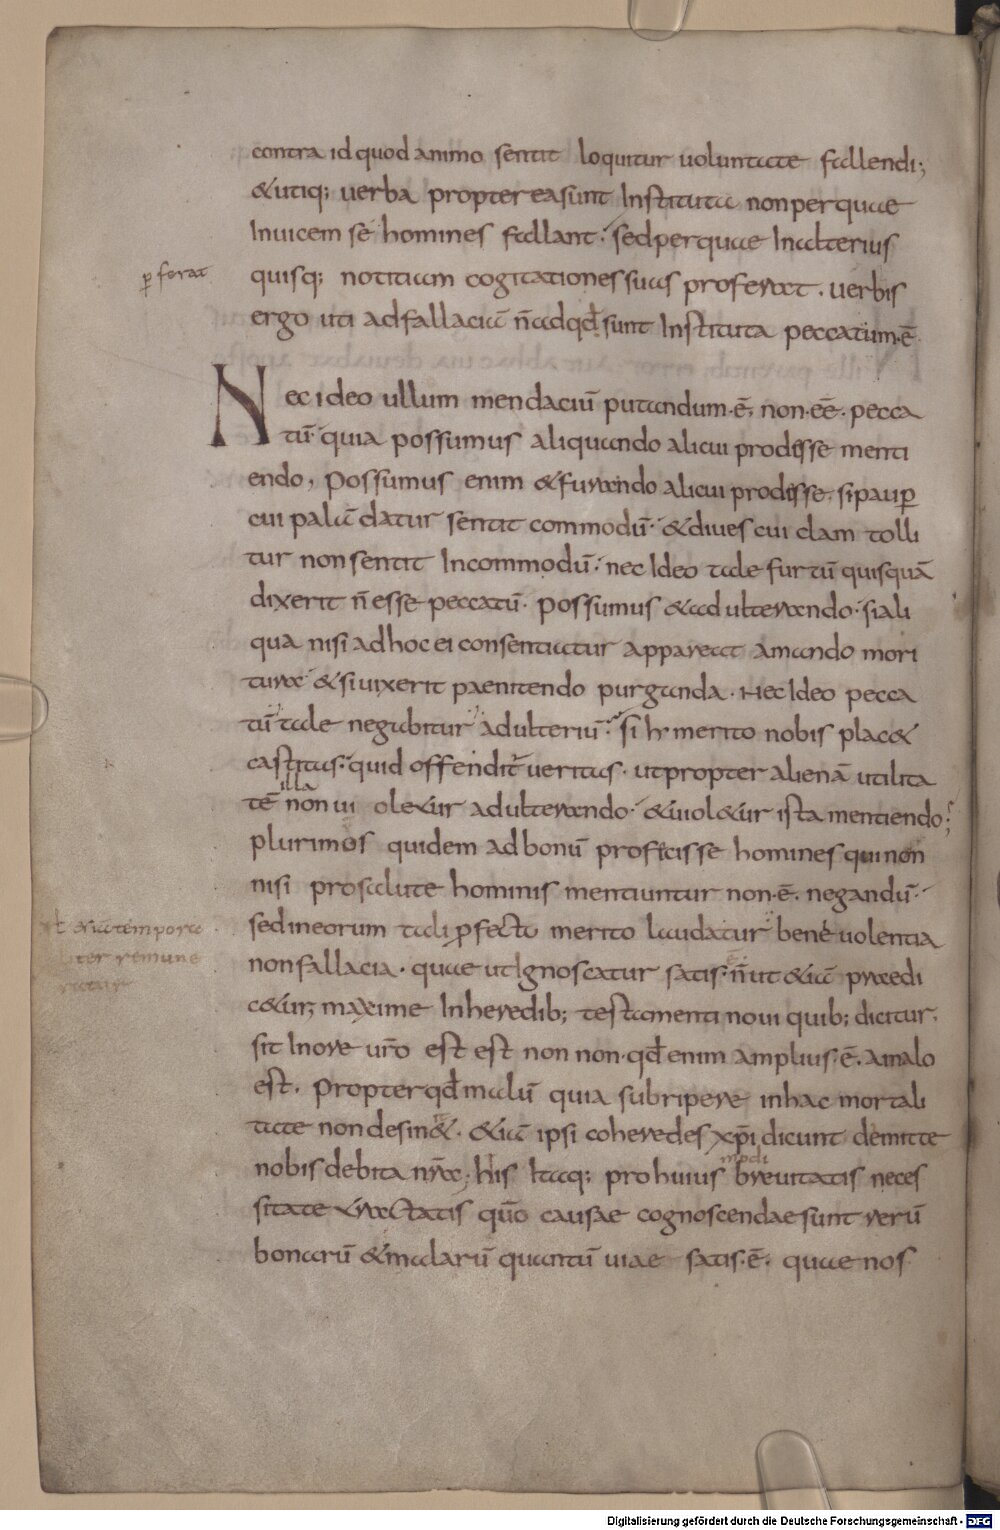 contra id quod animo sentit loquitur uoluntate fallendi;
&utiq; uerba propterea sunt Instituta non per quae
Inuicem sé homines fallant. sed per quae In alterius
quisq; notitiam cogitationes suas proferat. uerbis
ꝑferat
ergo uti ad fallaciā n̄ ad qđ sunt Instituta peccatum.ē.
Nec ideo ullum mendaciū putandum.ē, non.eē. pecca
tū. quia possumus aliquando alicui prodesse menti
endo, Possumus enim &furando alicui prodesse. si pauꝑ
cui palā datur sentit commodū. &diues cui clam tolli
tur non sentit Incommodū. nec Ideo tale furtū quisquā
dixerit n̄ esse peccatū. possumus &adulterando. si ali
qua nisi ad hoc ei consentiatur appareat amando mori
tura &si uixerit paenitendo purganda. Nec Ideo pecca
tū tale negabitur adulteriū. si h merito nobis plac&
castitas. quid offendit ueritas. ut propter alienā utilita
tē illa non ui olexur adulterando. &uiol&ur ista mentiendo;
plurimos quidem ad bonū proficisse homines qui non
nisi pro salute hominis mentiuntur non.ē. negandū.
sed in eorum tali ꝑfectu merito laudatur beneuolentia
non fallacia. quae ut Ignoscatur satis. n̄ ut &iā praedi
&iā tempora
liter remune
ratur
c&ur; maxime In heredib; testamenti noui quib; dicitur.
sit In ore ur̄o est est non non. qđ enim amplius.ē. a malo
est. Propter qđ malū quia subripere in hac mortali
tate non desin&. &iā ipsi coheredes xp̄i dicunt demitte
nobis debita nr̄a; His Itaq; pro huius modi breuitatis neces
sitate tractatis quō causae cognoscendae sunt rerū
bonarū &malarū quantū uiae satis.ē. quae nos
Digitalisierung gefördert durch die Deutsche Forschungsgemeinschaft - DFG